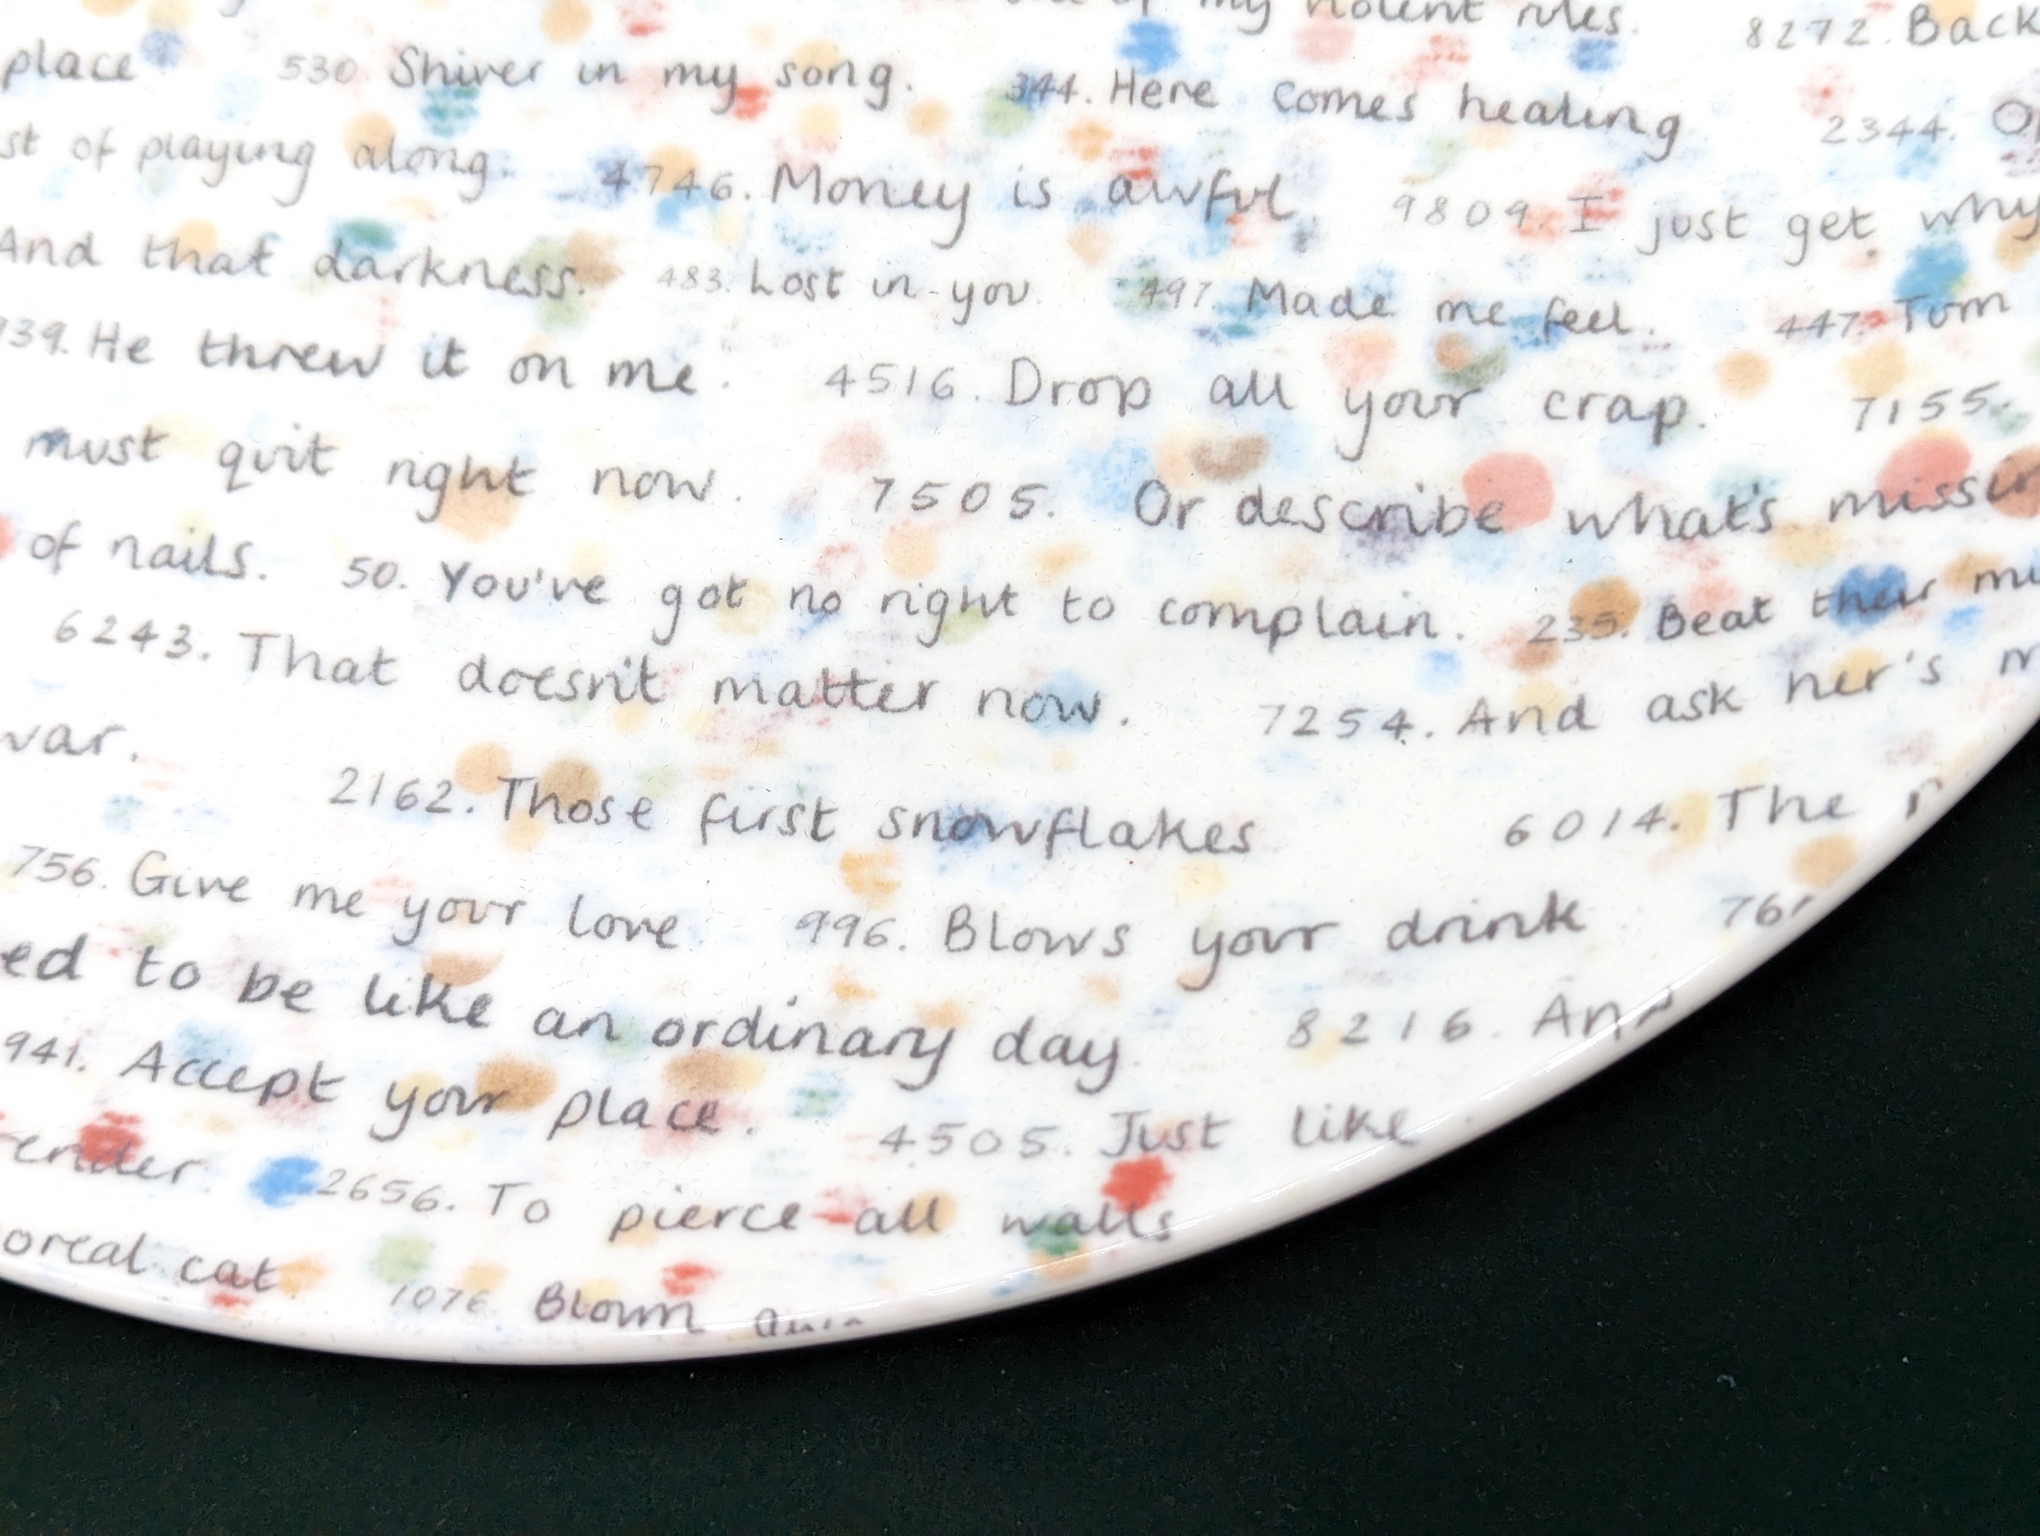 my violent rules. 8272. Back
place 530. Shiver in my song. 344. Here comes healing 2344.
st of playing along. 4746. Money is awful. 9809. I just get why
And that darkness. 483. Lost in you 497. Made me feel. 447. Turn
939. He threw it on me. 4516. Drop all your crap. 7155.
must quit right now. 7505. Or describe what's missin
of nails. 50. You've got no right to complain. 235. Beat their mu
6243. That doesn't matter now. 7254. And ask her's m
war. 2162. Those first snowflakes 6014. The
756. Give me your love. 996. Blows your drink 76
ed to be like an ordinary day. 8216. And
941. Accept your place. 4505. Just like
ender. 2656. To pierce all walls
oreal cat 1076. Blown